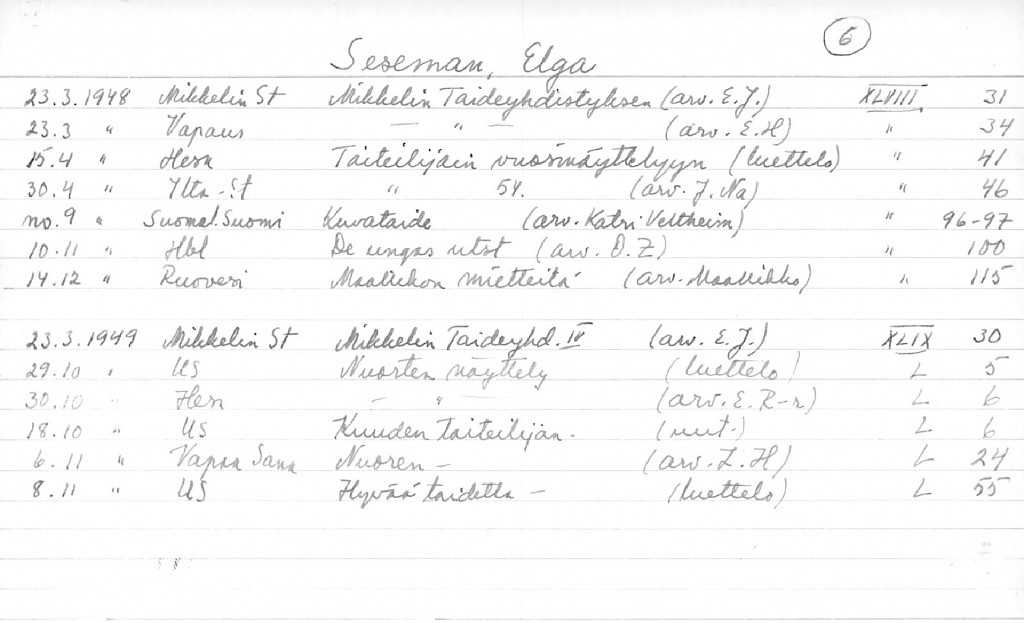 6
Seseman, Elga
23.3.1948 Mikkelin St Mikkelin Taideyhdistyksen (arv. E.J.) XLVIII 31
23.3 " Vapaus — " — (arv. E.H) " 34
15.4 " Hesn Taiteilijain vuosinäyttelyyn (luettelo) " 41
30.4 " Ilta-St " 54. (arv. J. Na) " 46
no. 9 " Suomal. Suomi Kuvataide (arv. Katri Veltheim) " 96-97
10.11 " Hbl De ungas utst (arv. O.Z) " 100
14.12 " Ruovesi Maallikon mietteitä (arv. Maallikko) " 115
23.3.1949 Mikkelin St Mikkelin Taideyhd. IV (arv. E.J.) XLIX 30
29.10 " US Nuorten näyttely (luettelo) L 5
30.10 " Hesn — " — (arv. E. R-r) L 6
18.10 " US Kuuden taiteilijan - (uut.) L 6
6.11 " Vapaa Sana Nuoren - (arv. L.H) L 24
8.11 " US Hyvää taidetta - (luettelo) L 55